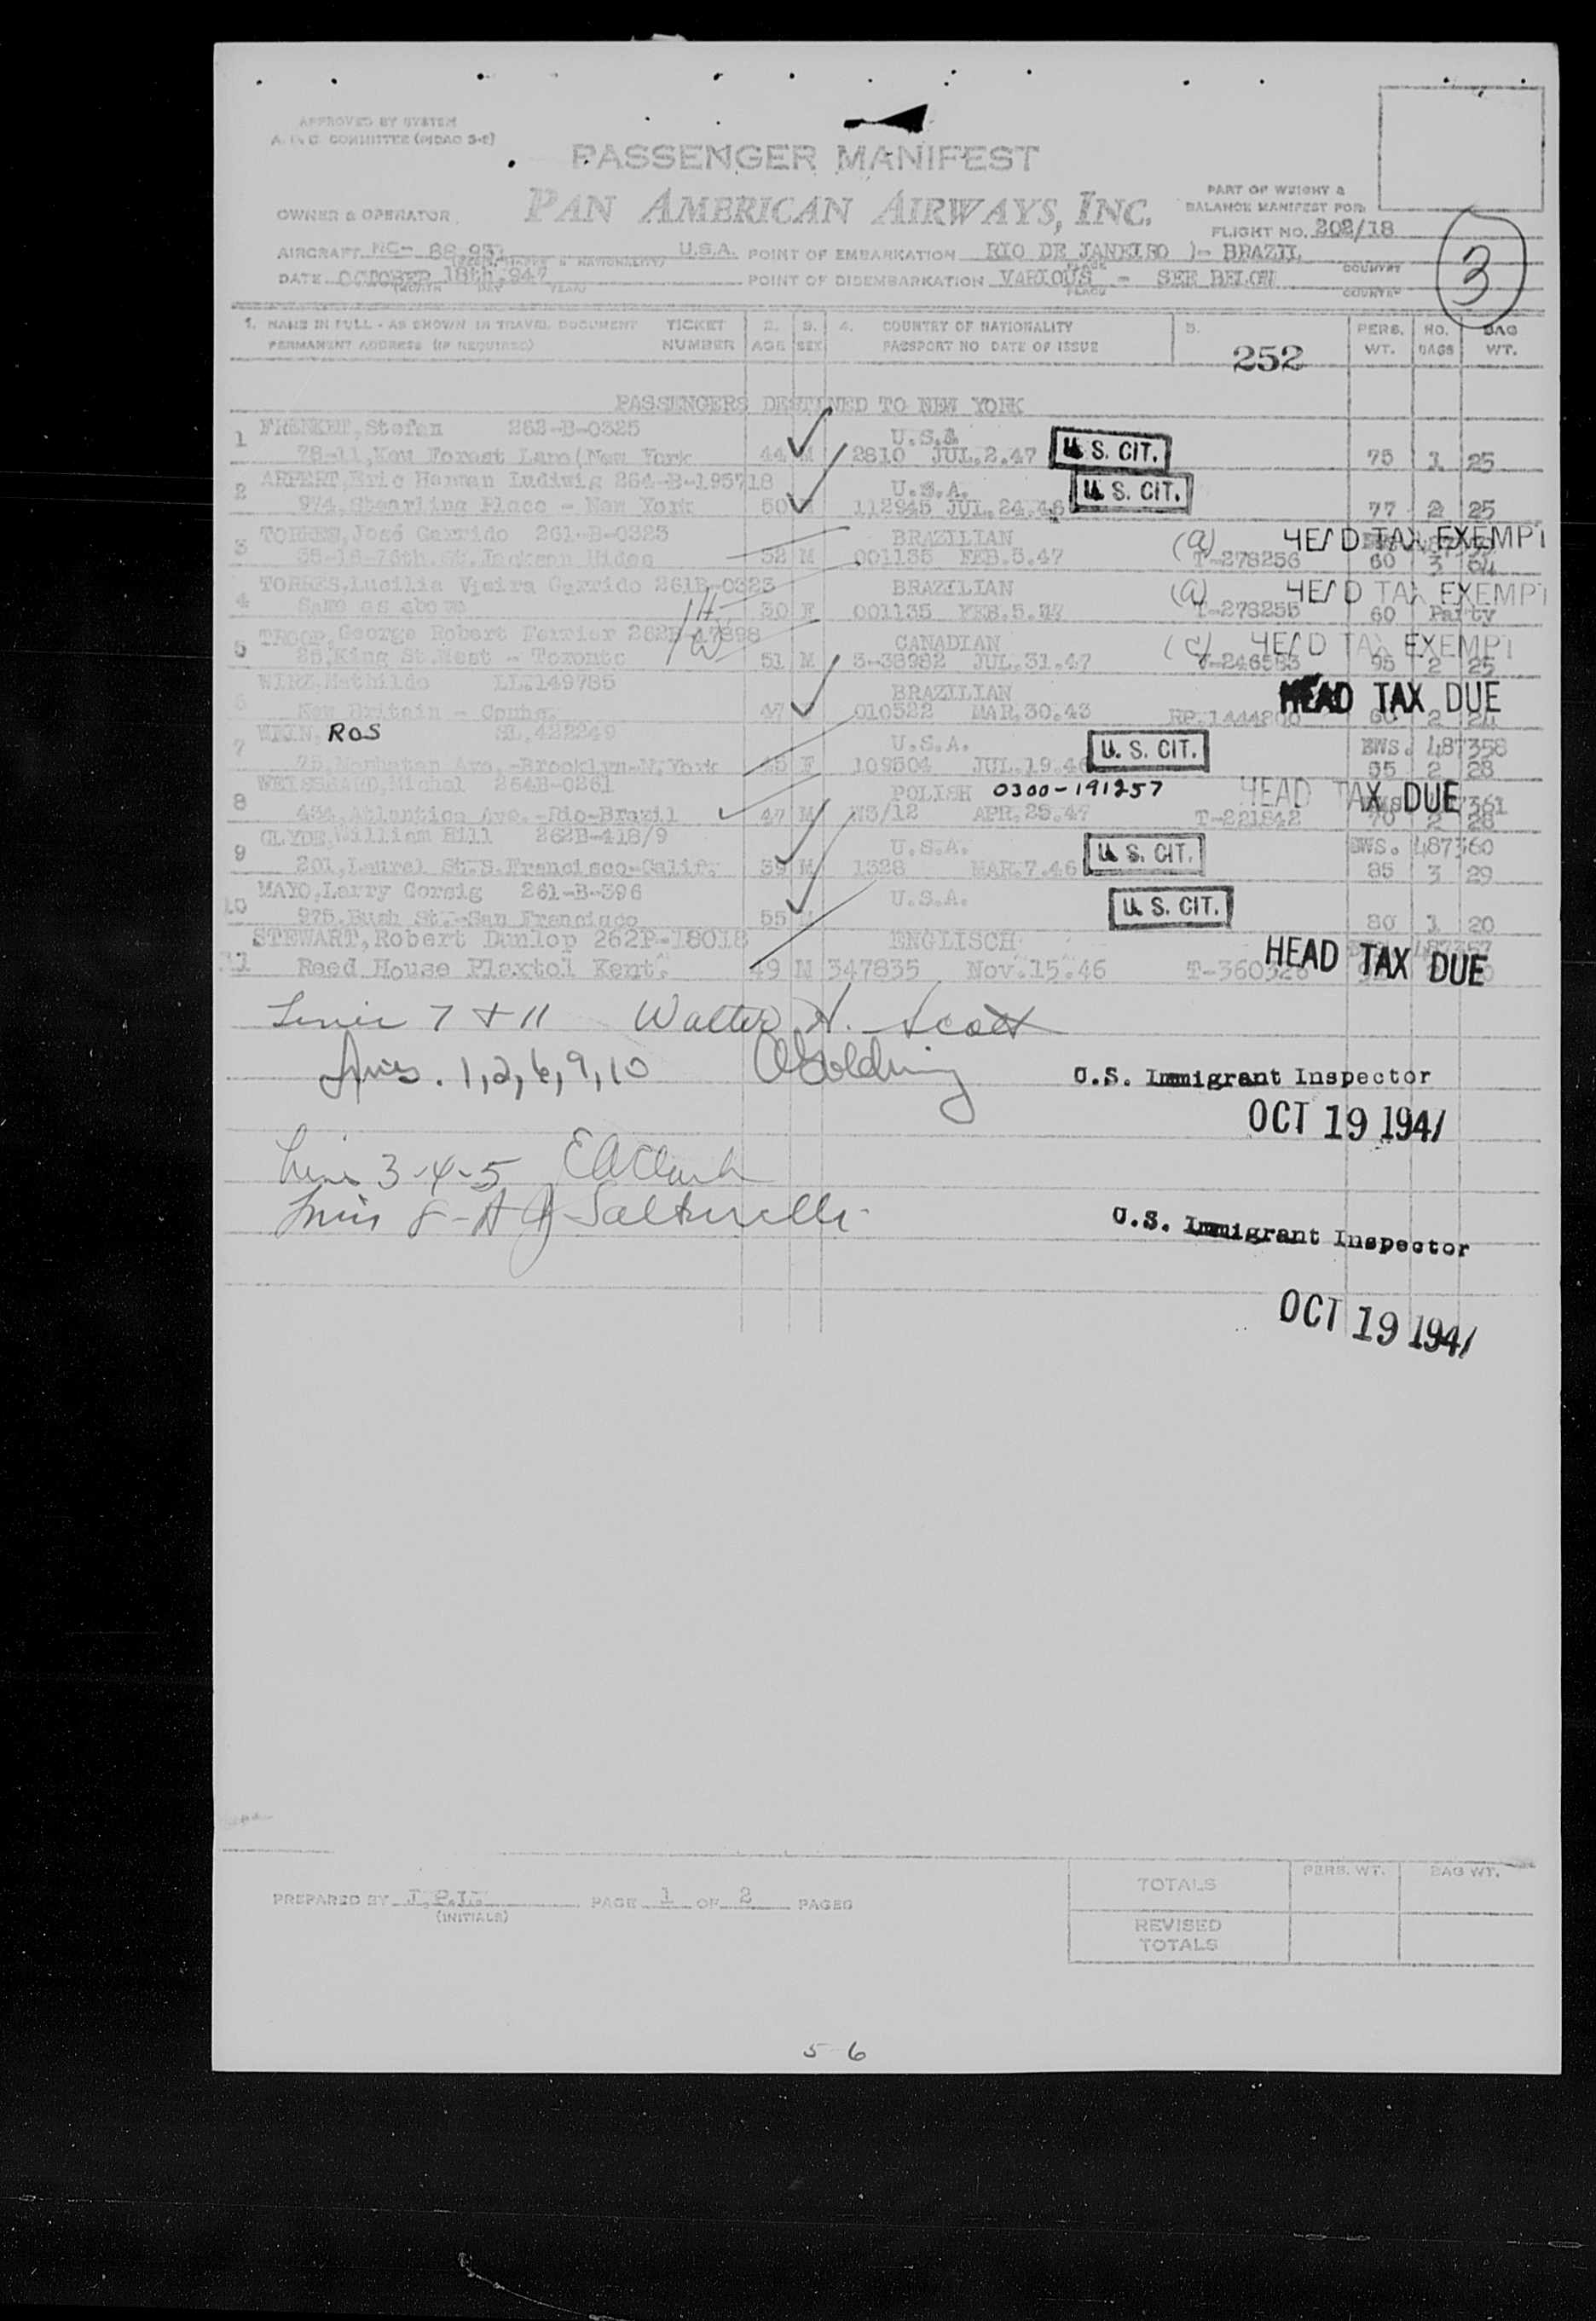 APPROVED BY SYSTEM
A. & C. COMMITTEE (MIDAO 3-2)
PASSENGER MANIFEST
PAN AMERICAN AIRWAYS, INC.
PART OF WEIGHT &
BALANCE MANIFEST FOR:
OWNER & OPERATOR
FLIGHT NO. 202/18
AIRCRAFT NC- 88 937 U.S.A. POINT OF EMBARKATION RIO DE JANEIRO )- BRAZIL
3
DATE OCTOBER 18th, 947 POINT OF DISEMBARKATION VARIOUS - SEE BELOW
(MONTH DAY YEAR) PLACE COUNTRY
1. NAME IN FULL - AS SHOWN IN TRAVEL DOCUMENT TICKET 2. 3. 4. COUNTRY OF NATIONALITY 5. PERS. NO. BAG
PERMANENT ADDRESS (IF REQUIRED) NUMBER AGE SEX PASSPORT NO DATE OF ISSUE 252 WT. BAGS WT.
PASSENGERS DESTINED TO NEW YORK
1 FRENKEL, Stefan 262-B-0325 U.S.A
78-11, Kew Forest Lane(New York 44 M 2810 JUL.2.47 U.S. CIT. 75 1 25
2 Eric Herman Ludiwig 264-B-195718 U.S.A.
974, Place - New York 50 M 112945 JUL.24.46 U.S. CIT. 77 2 25
3 TORRES, José Garrido 261-B-0323 BRAZILIAN (a) HEAD TAX EXEMPT
35-16-76th. St. Jackson Hides 32 M 001135 FEB.5.47 T-278256 60 3 64
4 TORRES, Lucilia Vieira Garrido 261B-0323 BRAZILIAN (a) HEAD TAX EXEMPT
Same as above 30 F 001135 FEB.5.47 T-278255 60 Party
5 TROOP, George Robert Ferrier 262B-17898 CANADIAN HEAD TAX EXEMPT
25, King St. West - Toronto 51 M 3-38982 JUL.31.47 V-246583 95 2 25
6 WIRZ, Mathilde LL.149785 BRAZILIAN HEAD TAX DUE
New Britain - Conn. 47 010522 MAR.30.43 RP.1444200 60 2 24
7 WEIN, ROS SL.422249 U.S.A. U.S. CIT. BWS. 487358
75, Manhatan Ave.-Brooklyn-N.York F 109504 JUL.19.46 55 2 28
8 264B-0261 POLISH 0300-191257 HEAD TAX DUE
434 Atlantica Ave.-Rio-Brazil 47 M N3/12 APR.25.47 T-221842 70 2 28
9 CLYDE, William Hill 262B-418/9 U.S.A. U.S. CIT. BWS. 487360
201, Laurel St.S.Francisco-Calif. 39 M 1328 MAR.7.46 85 3 29
10 MAYO, Larry Corsig 261-B-396 U.S.A. U.S. CIT.
975, Bush St.-San Francisco 55 80 1 20
11 STEWART, Robert Dunlop 262P-18018 ENGLISCH HEAD TAX DUE
Reed House Plaxtol Kent. 49 M 347835 Nov.15.46 T-360326
Lines 7 & 11 Walter H. Scott
Lines. 1,2,6,9,10 Golding U.S. Immigrant Inspector
OCT 19 194/
Lines 3-4-5 EAClark
U.S. Immigrant Inspector
OCT 19 194/
PREPARED BY PAGE 1 OF 2 PAGES
(INITIALS)
TOTALS PERS. WT. BAG WT.
REVISED
TOTALS
5-6